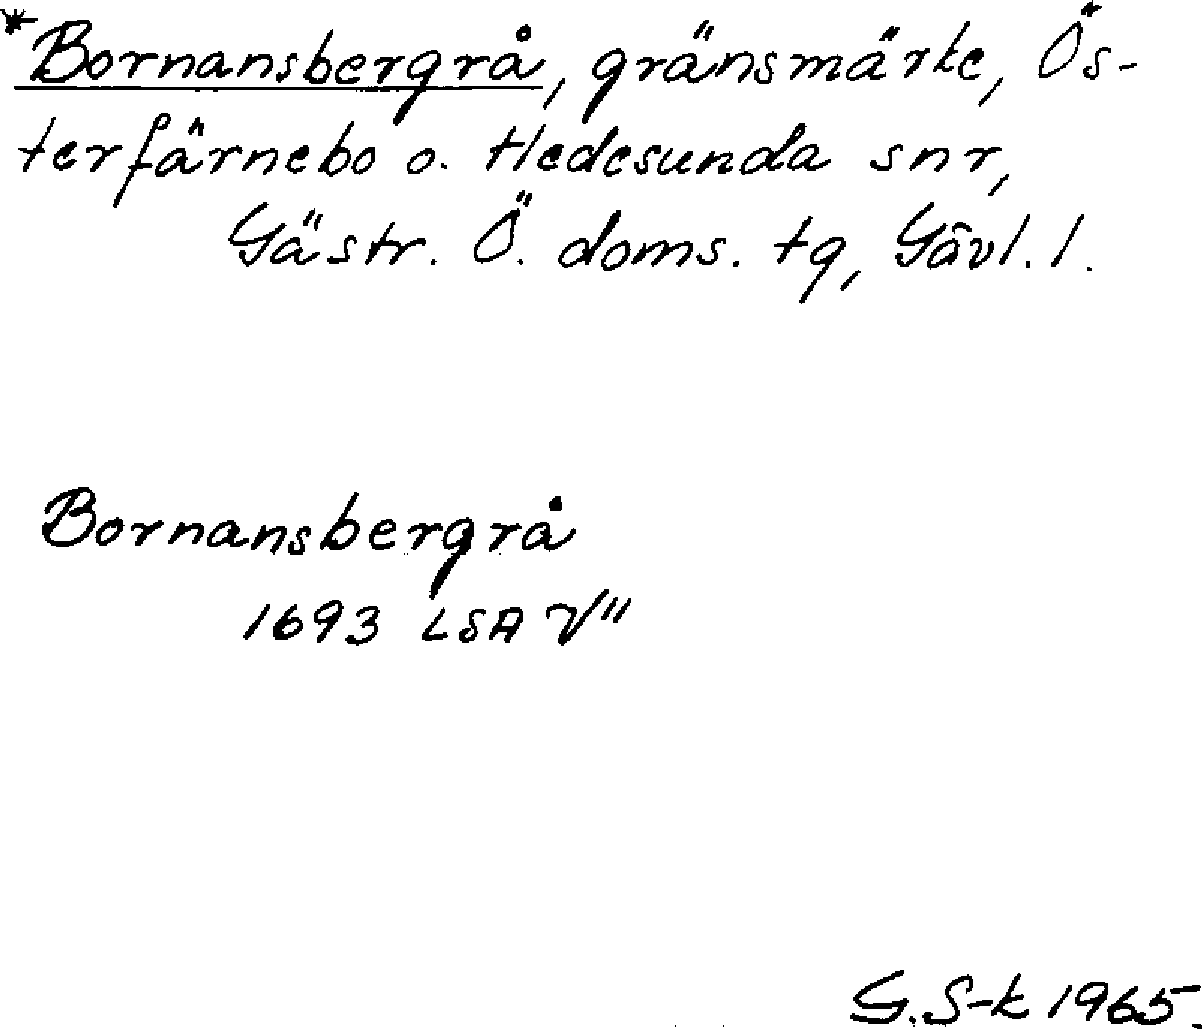 *Bornansbergrå, gränsmärke, Ös-
terfärnebo o. Hedesunda snr,
Gästr. Ö. doms. tg, Gävl. l.
Bornansbergrå
1693 LSA V"
G. S-k 1965